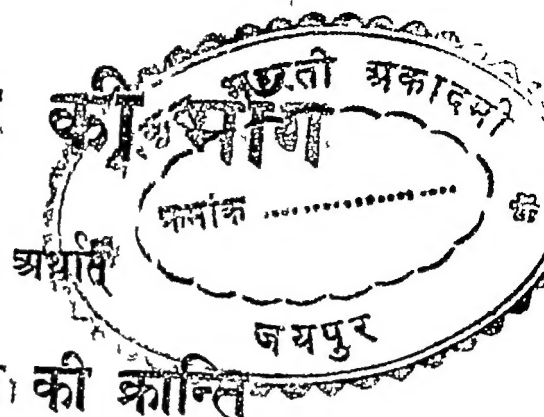 अकादमी
की
क्रमांक ....................
अर्थात्
जयपुर
की क्रान्ति